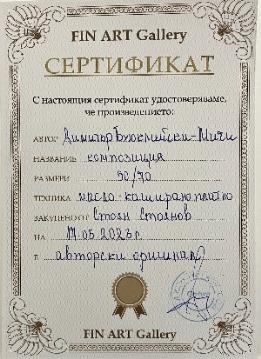 FIN ART Gallery
СЕРТИФИКАТ
С настоящия сертификат удостоверяваме,
че произведението:
АВТОР Димитър Буюклийски-Мичи
НАЗВАНИЕ композиция
РАЗМЕРИ 50/70
ТЕХНИКА масло-каширано платно
ЗАКУПЕНО ОТ Стоян Стоянов
НА 17.05.2023г.
Е авторски оригинал
FIN ART Gallery